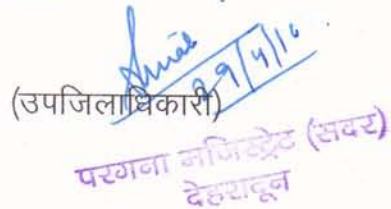 29/4/16
(उपजिलाधिकारी)
परगना मजिस्ट्रेट (सदर)
देहरादून